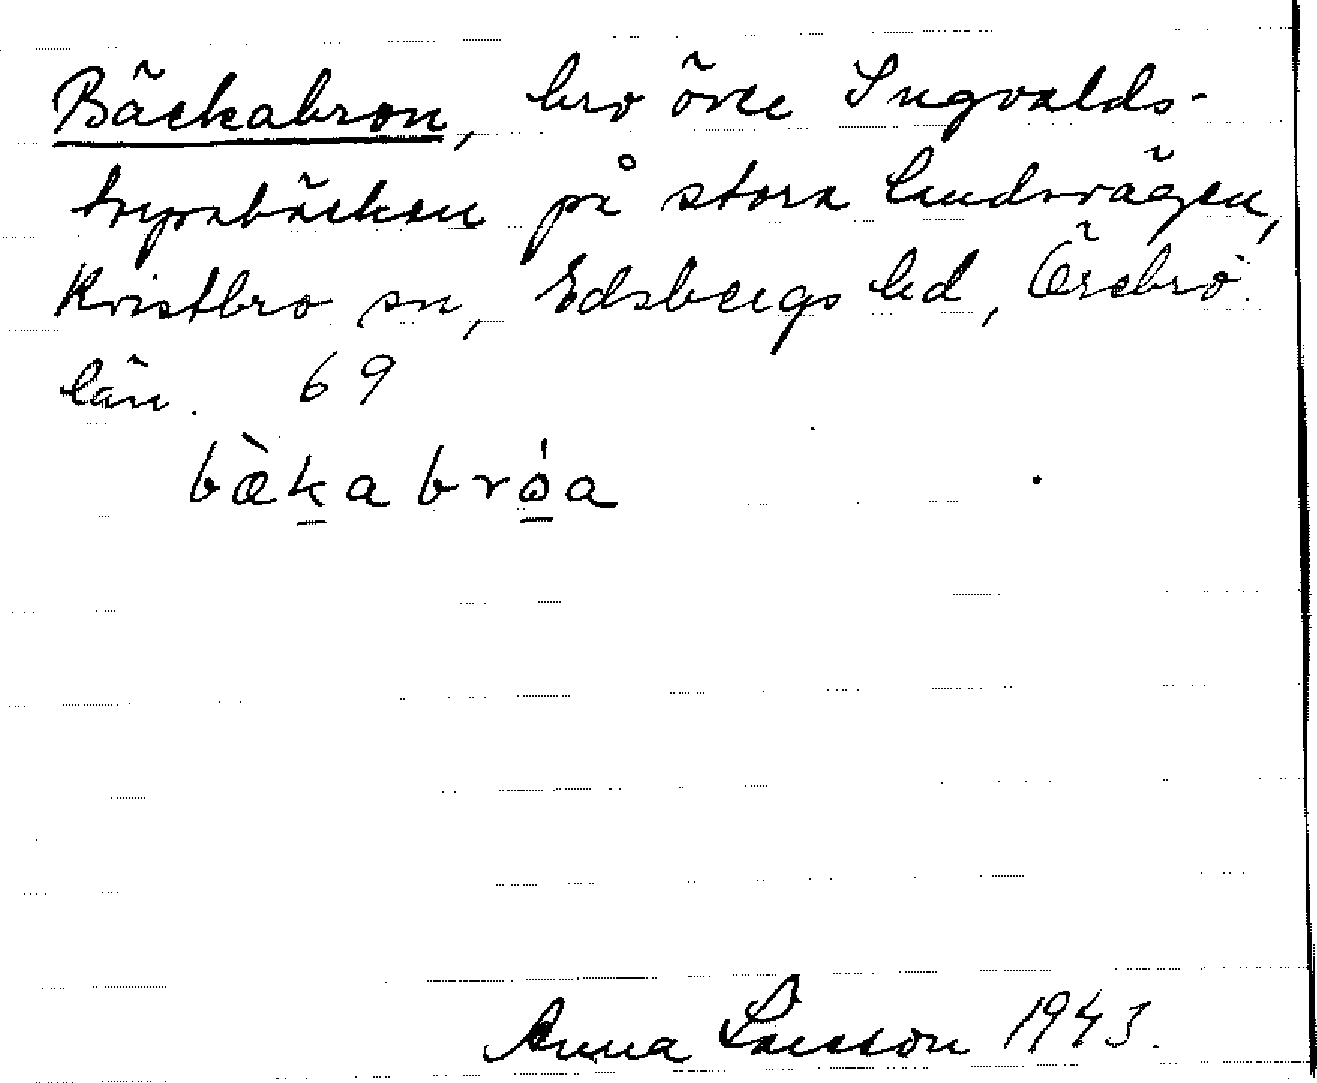 Bäckabron, bro över Ingvalds-
torpabäcken på stora landsvägen,
Kvistbro sn, Edsbergs hd, Örebro
län. 69
bæ̀ka brǿa
Anna Larsson 1943.